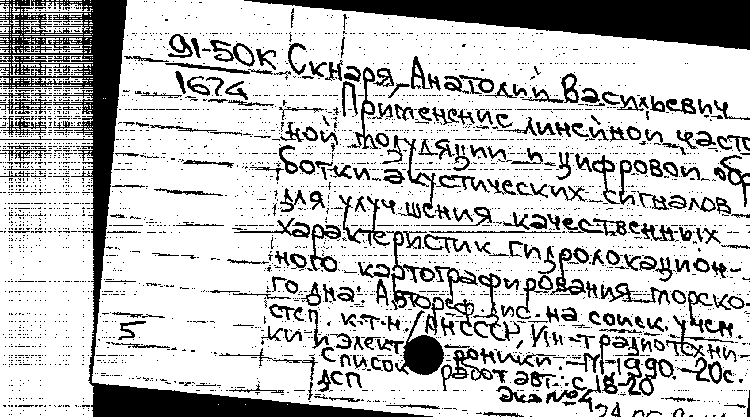 91-50К Скнаря Анатолий Васильевич
1674
Применение линейной часто
ной модуляции и цифровой обр
ботки акустических сигналов
для улучшения качественных
характеристик гидролокацион-
ного картографирования морско-
го дна: Автореф. дис. на соиск. учен.
степ. к.т.н. / АН СССР, Ин-т радиотехни-
5 ки и электроники. - М., 1990. - 20с.
Список работ авт.: с. 18-20
ДСП
Экз № 4